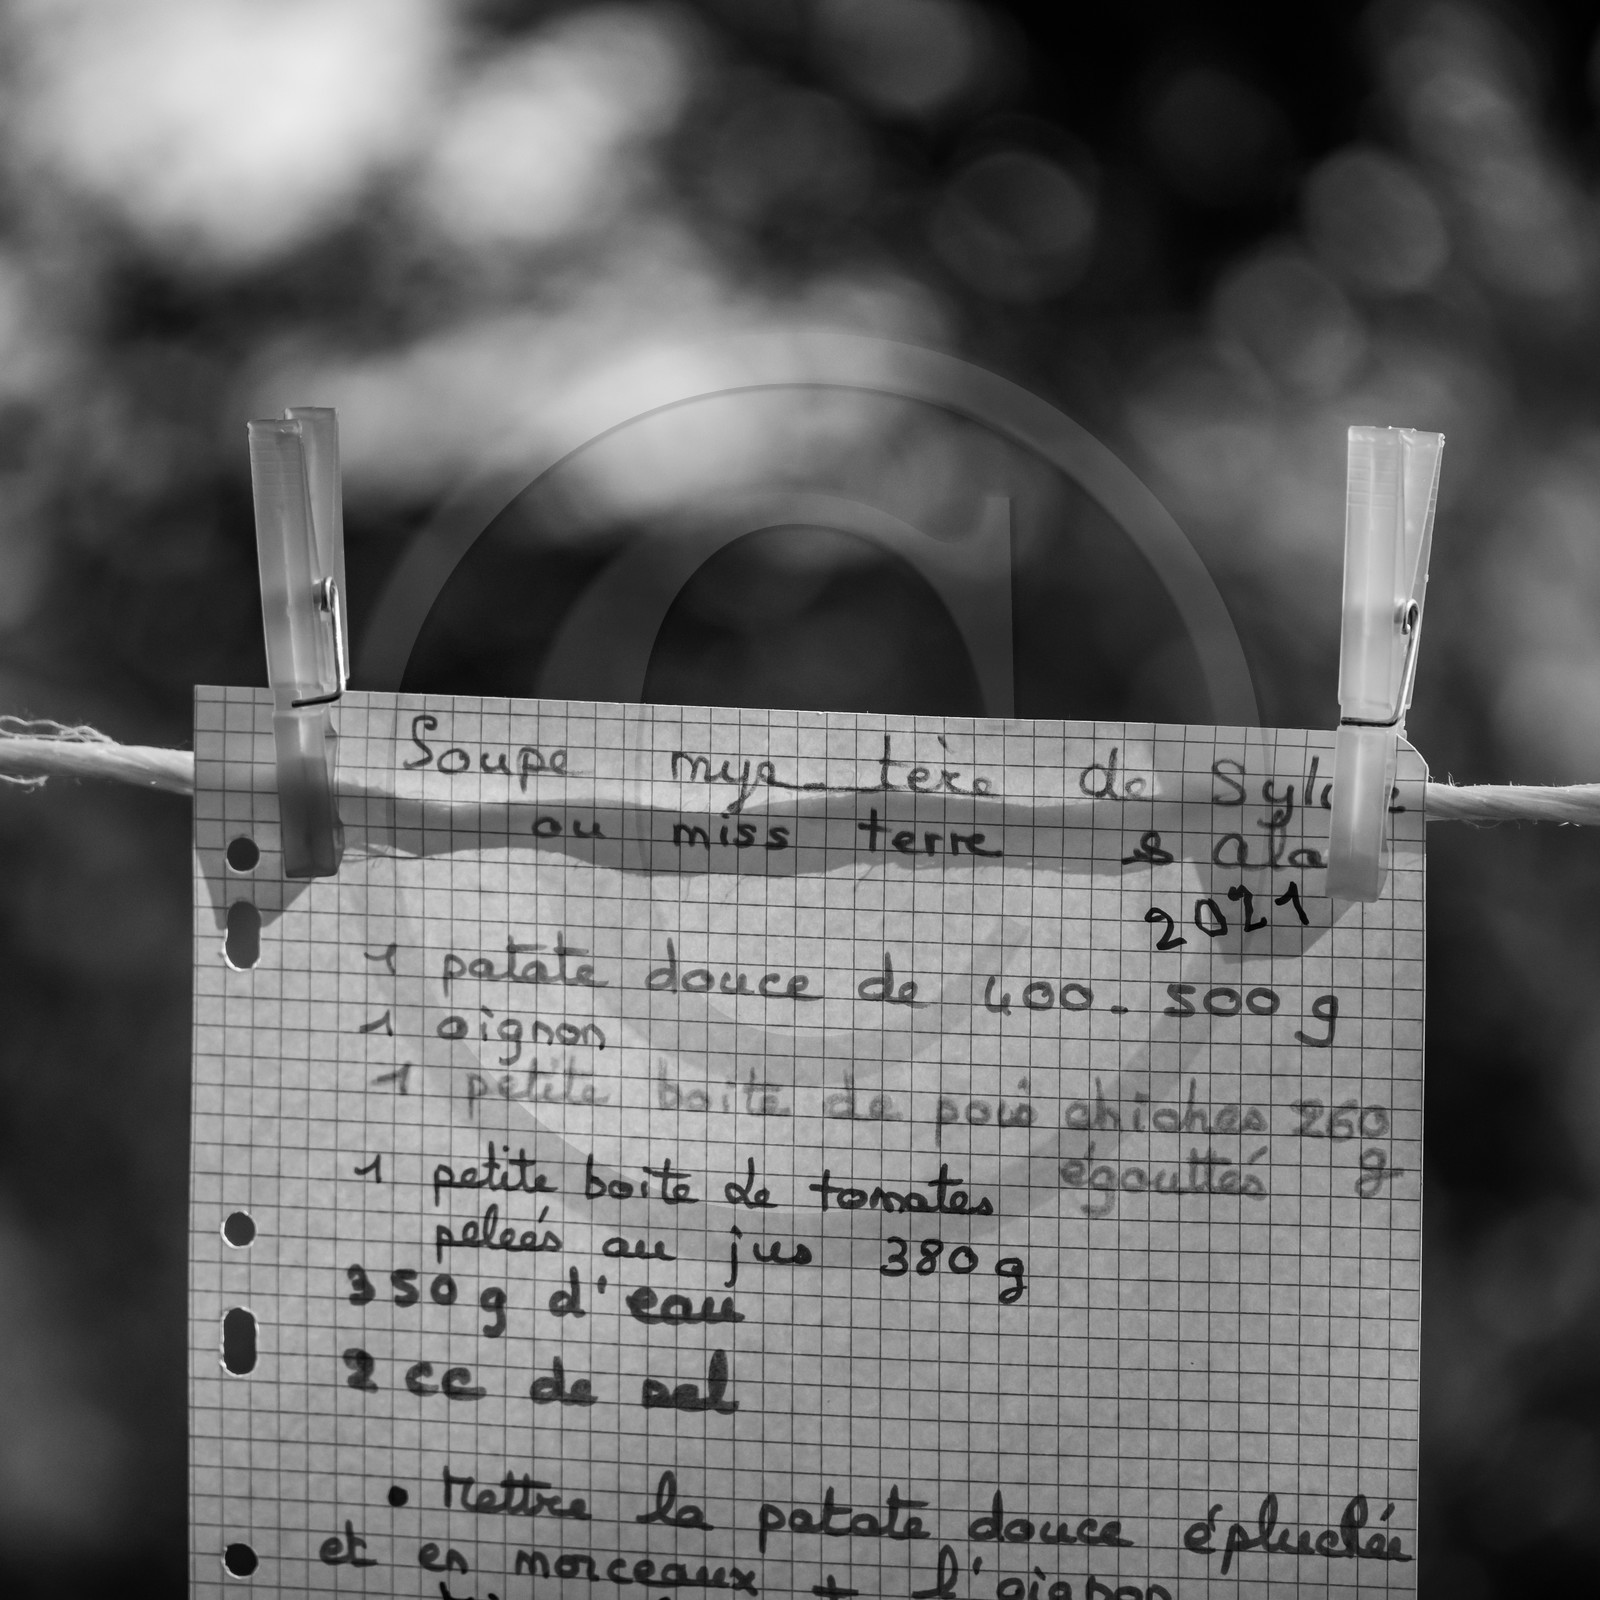 Soupe mys_tère de
ou miss terre & Ala
2021
1 patate douce de 400. 500 g
1 oignon
1 petite boite de pois chiches 260 g
égouttés
1 petite boite de tomates
pelées au jus 380 g
350 g d'eau
2 cc de sel
• Mettre la patate douce épluchée
et en morceaux + l'oignon